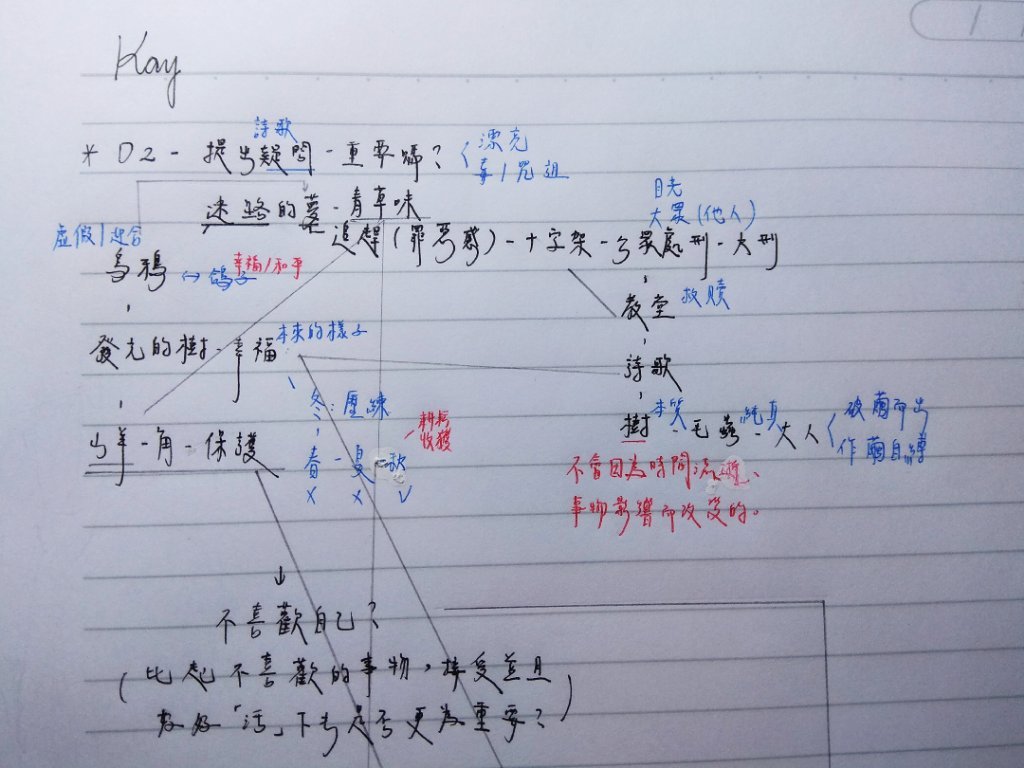 Kay
詩歌
* D2 - 提出疑問 - 重要嗎?
漂亮
毒/咒詛
迷路的薆 - 青草味
目光
大眾(他人)
虛假/迎合
追趕(罪惡感) - 十字架 - 公眾處刑 - 大刑
烏鴉 ↔ 鴿子 幸福/和平
教堂 救贖
本來的樣子
發光的樹 - 幸福
詩歌
冬:歷練
本質 純真
破繭而出
樹 - 毛蟲 - 大人
作繭自縛
耕耘
收獲
山羊 - 角 - 保護
春 - 夏 - 秋
x x v
不會因為時間流逝、
事物影響而改變的。
↓
不喜歡自己?
(比起不喜歡的事物,接受並且
好好「活」下去是否更為重要?)